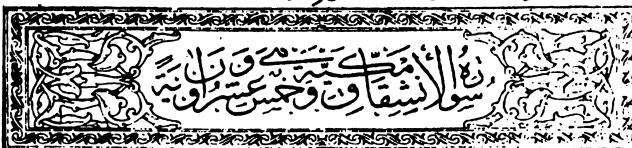 سورة الأنشقاق مكية وهي خمس وعشرون آية